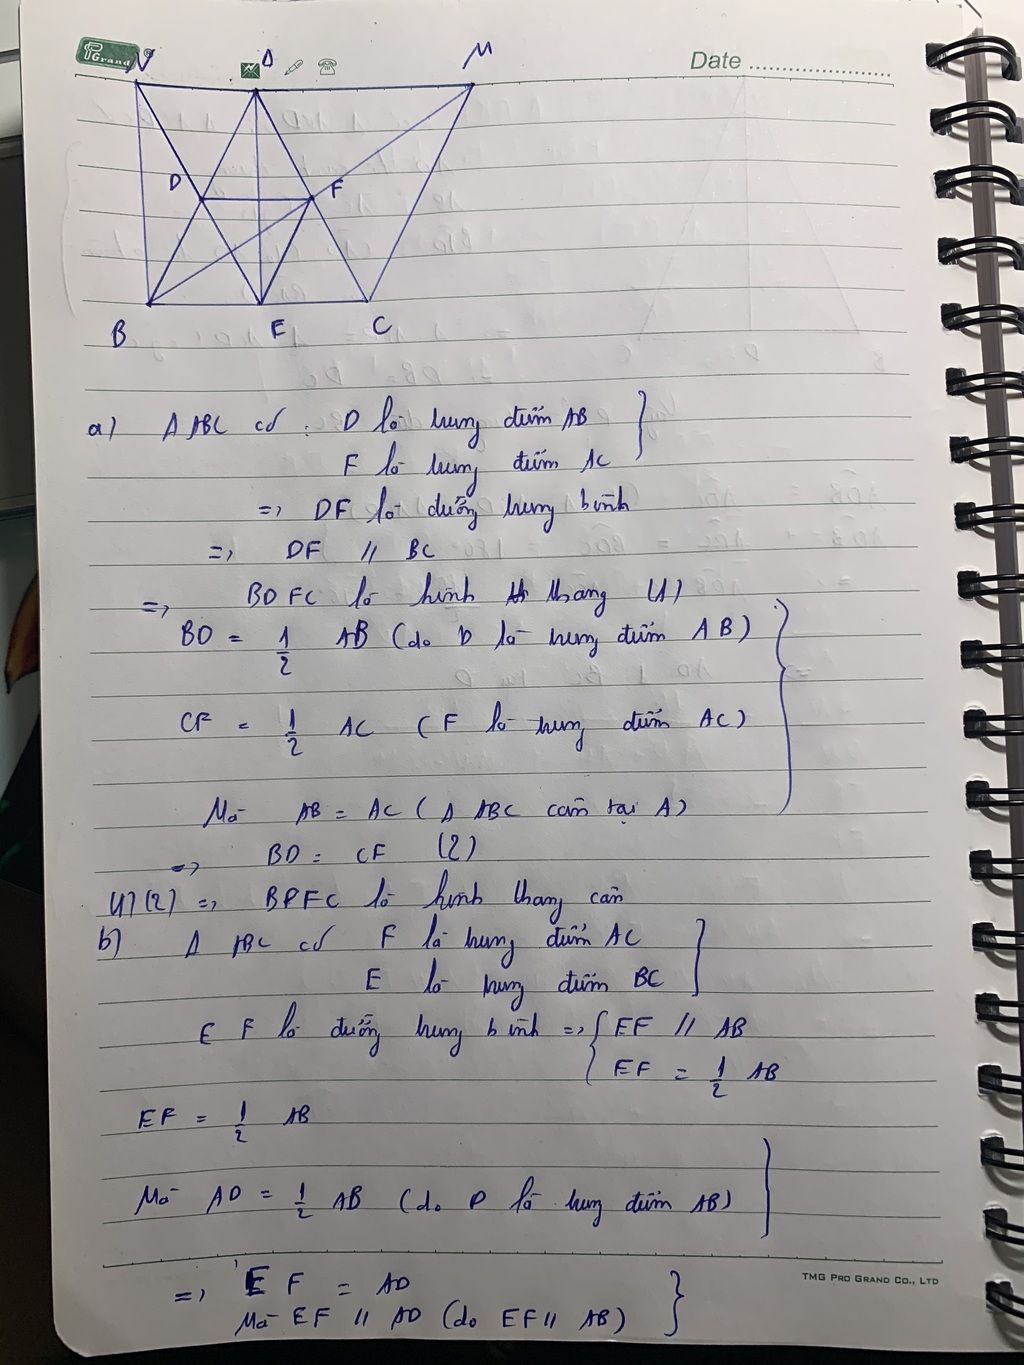 PGrand
Date ......................
N A M
D F
B E C
a) Δ ABC có : D là trung điểm AB
F là trung điểm AC
=> DF là đường trung bình
=> DF // BC
=> BDFC là hình thang (1)
BD = 1/2 AB (do D là trung điểm AB)
CF = 1/2 AC (F là trung điểm AC)
Mà AB = AC (Δ ABC cân tại A)
=> BD = CF (2)
(1)(2) => BDFC là hình thang cân
b) Δ ABC có F là trung điểm AC
E là trung điểm BC
EF là đường trung bình => { EF // AB
EF = 1/2 AB
EF = 1/2 AB
Mà AD = 1/2 AB (do D là trung điểm AB)
=> EF = AD
Mà EF // AD (do EF // AB)
TMG PRO GRAND CO., LTD